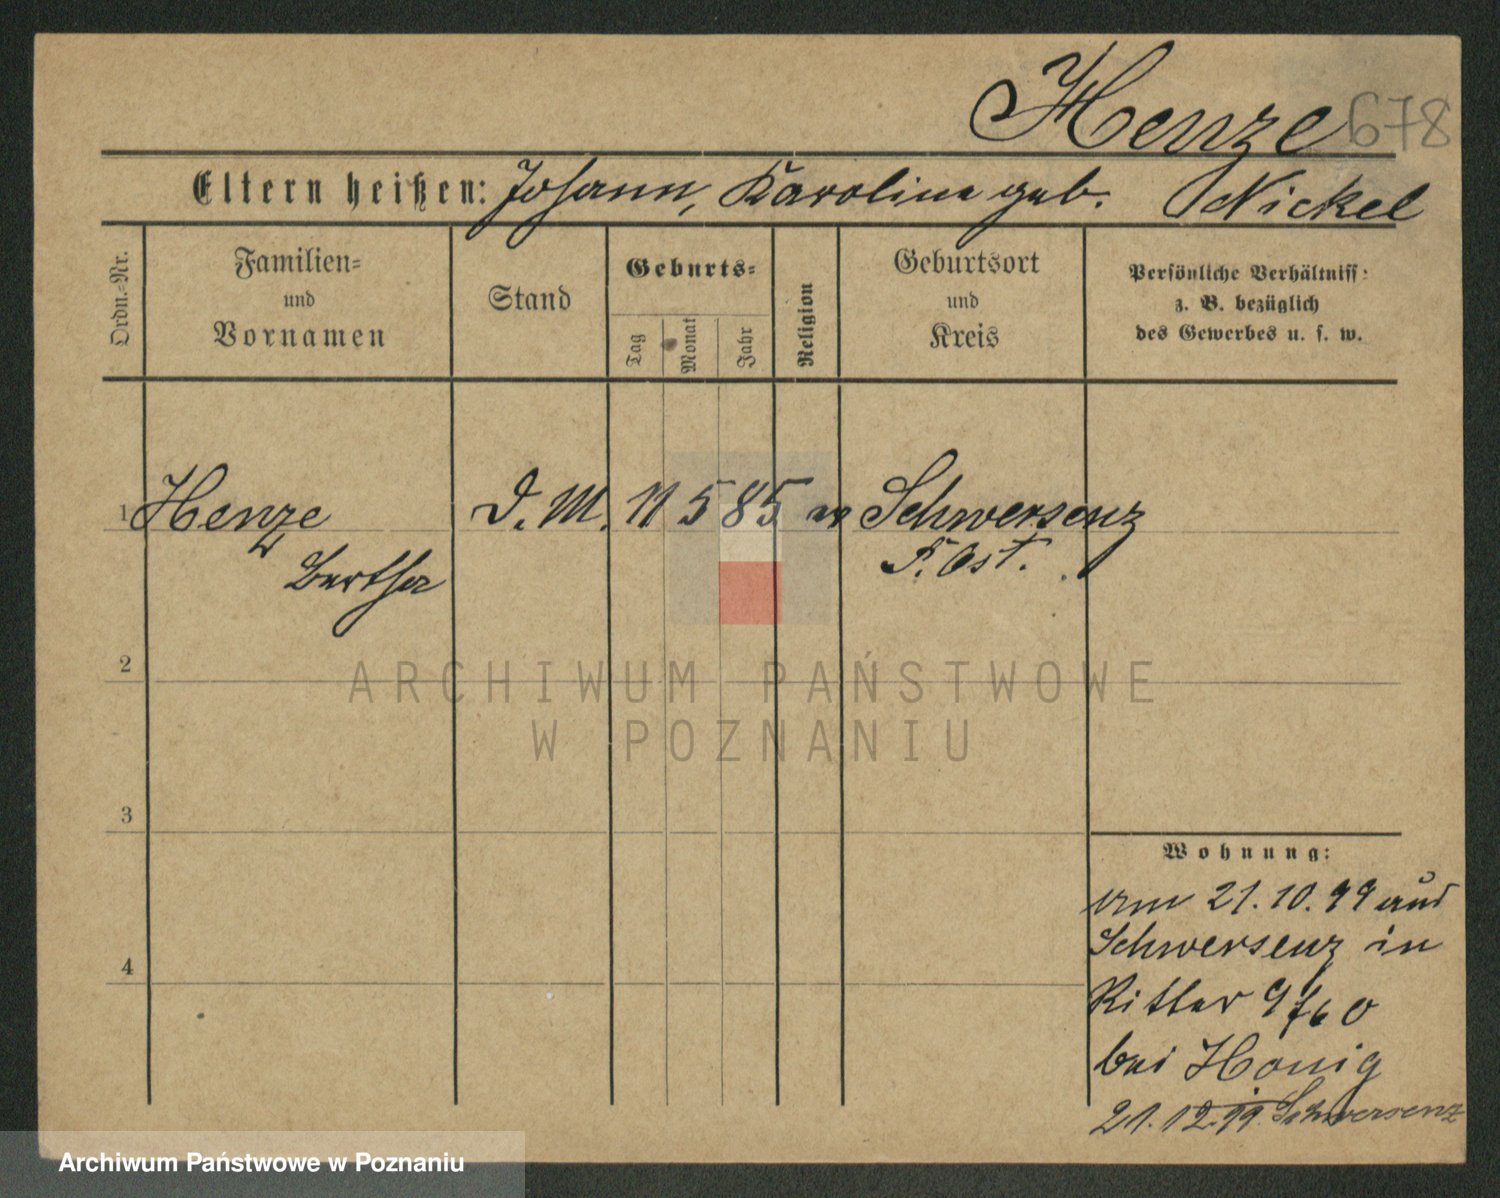 Henze 678
Eltern heißen: Johann, Karoline geb. Nickel
Ordn.-Nr.
Familien-
und
Vornamen
Stand
Geburts-
Tag
Monat
Jahr
Religion
Geburtsort
und
Kreis
Persönliche Verhältniss-
z. B. bezüglich
des Gewerbes u. s. w.
1 Henze D. M. 11 5 85 Schwersenz
Bertha P. Ost.
2
3
4
Wohnung:
am 21.10.99 aus
Schwersenz in
Ritter 9/60
bei Honig
21.12.99. Schwersenz
ARCHIWUM PAŃSTWOWE
W POZNANIU
Archiwum Państwowe w Poznaniu